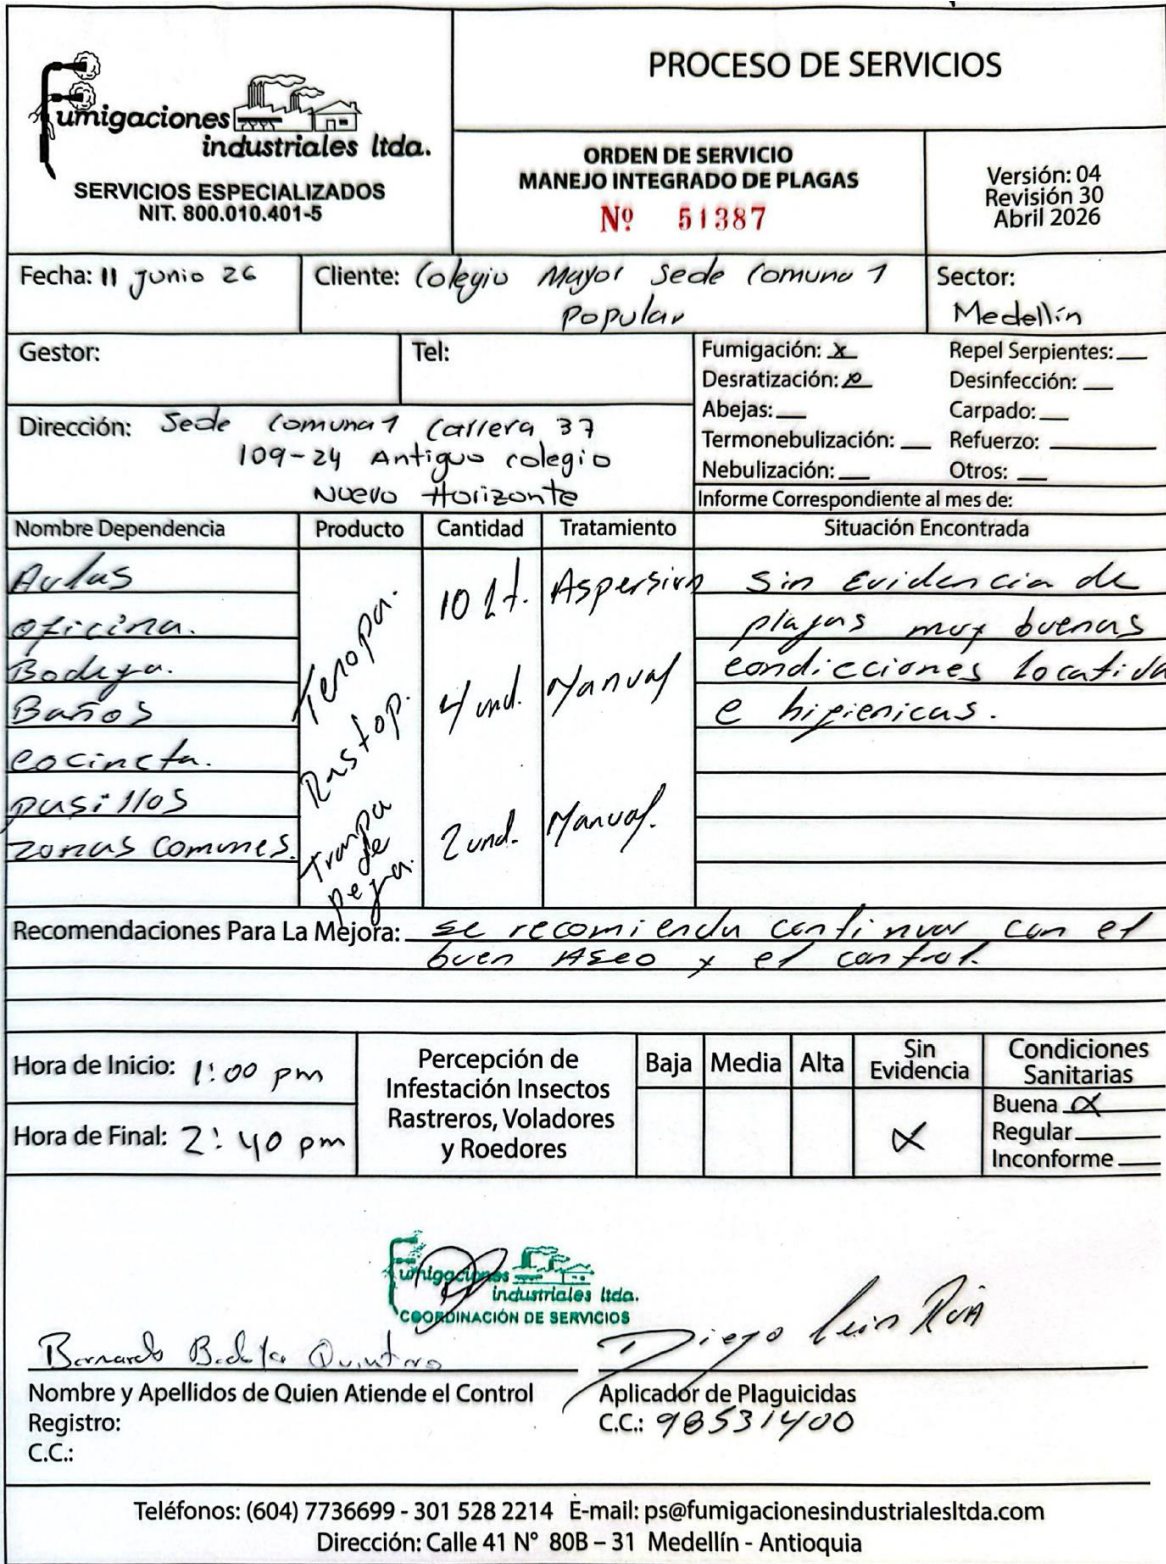 Fumigaciones
industriales ltda.
SERVICIOS ESPECIALIZADOS
NIT. 800.010.401-5
PROCESO DE SERVICIOS
ORDEN DE SERVICIO
MANEJO INTEGRADO DE PLAGAS
Nº 51387
Versión: 04
Revisión 30
Abril 2026
Fecha: 11 Junio 26
Cliente: Colegio Mayor Sede Comuna 1
Popular
Sector:
Medellín
Gestor:
Tel:
Fumigación: x
Repel Serpientes:
Desratización: x
Desinfección:
Abejas:
Carpado:
Termonebulización:
Refuerzo:
Nebulización:
Otros:
Dirección: Sede Comuna 1 Carrera 37
109-24 Antiguo colegio
Nuevo Horizonte
Informe Correspondiente al mes de:
Nombre Dependencia Producto Cantidad Tratamiento Situación Encontrada
Aulas
oficina.
Bodega.
Baños
cocineta.
pasillos
zonas comunes.
Tenopa.
Rastop.
Trampa
de
pega.
10 Lt.
4 und.
2 und.
Aspersion
Manual
Manual.
Sin Evidencia de
plagas muy buenas
condicciones locativa
e higienicas.
Recomendaciones Para La Mejora: se recomienda continuar con el
buen Aseo y el control.
Hora de Inicio: 1:00 pm
Hora de Final: 2:40 pm
Percepción de
Infestación Insectos
Rastreros, Voladores
y Roedores
Baja Media Alta Sin
Evidencia
x
Condiciones
Sanitarias
Buena x
Regular
Inconforme
Fumigaciones
industriales ltda.
COORDINACIÓN DE SERVICIOS
Bernardo Quintero
Diego Luis
Nombre y Apellidos de Quien Atiende el Control
Registro:
C.C.:
Aplicador de Plaguicidas
C.C.: 98531400
Teléfonos: (604) 7736699 - 301 528 2214 E-mail: ps@fumigacionesindustrialesltda.com
Dirección: Calle 41 N° 80B – 31 Medellín - Antioquia